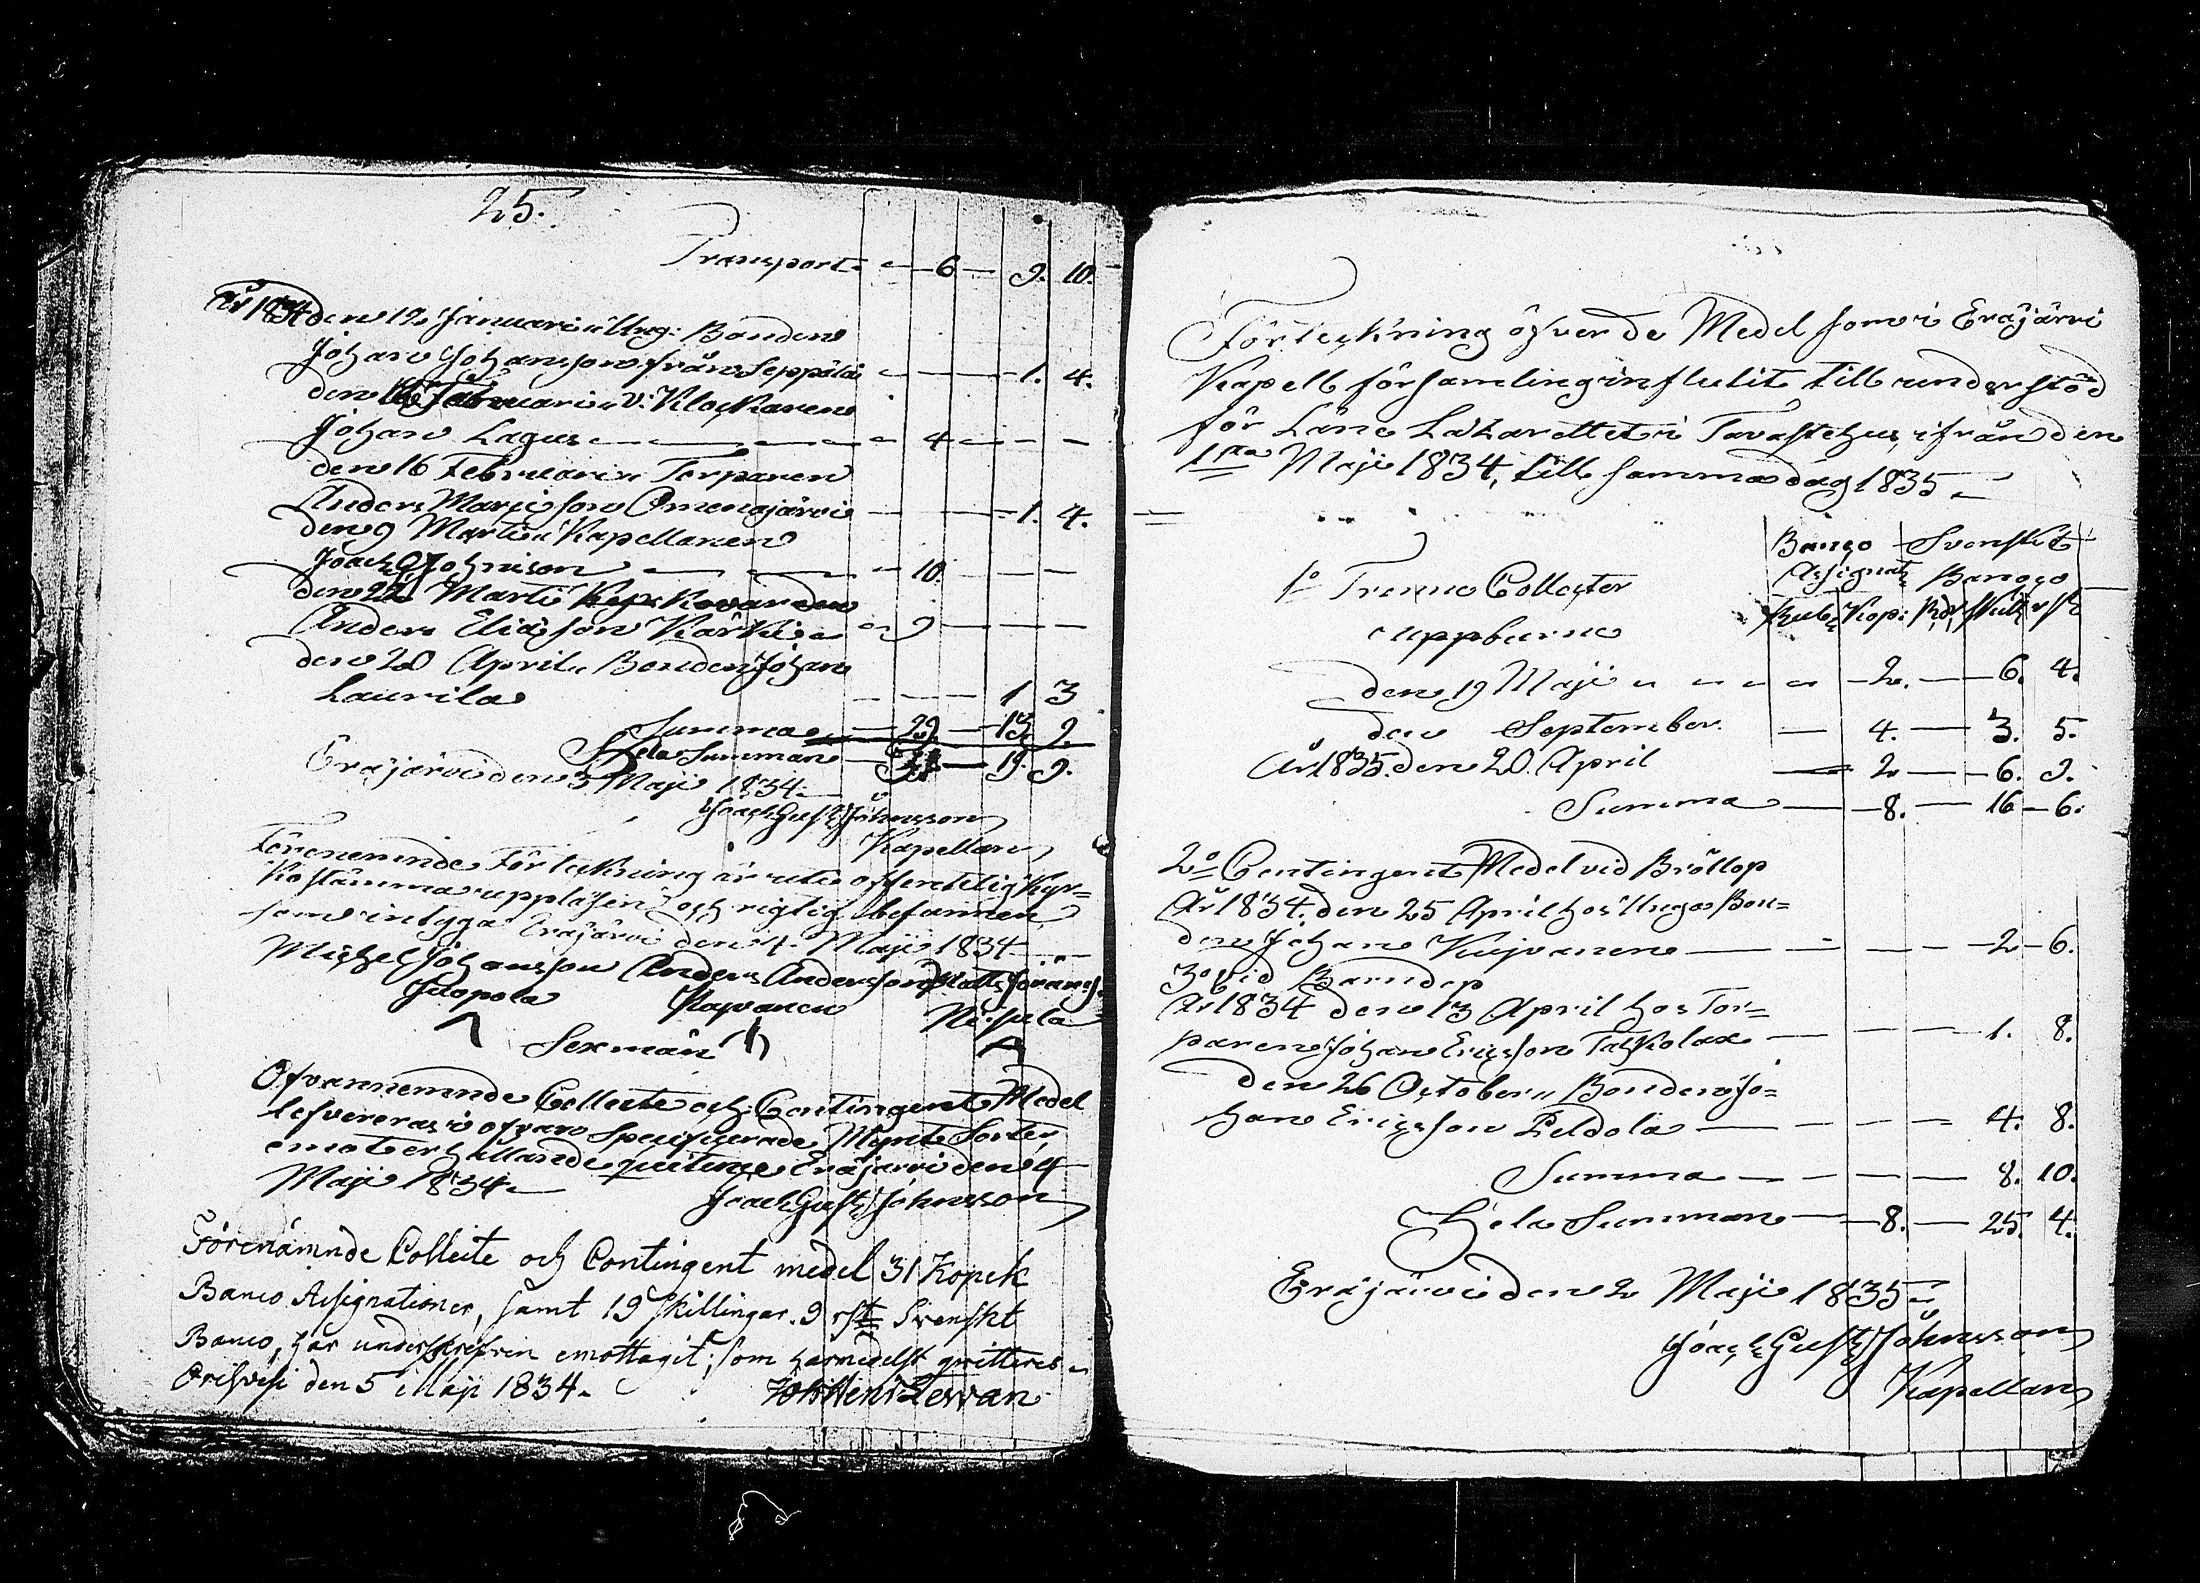 25.
Transport — 6 — 9. 10.
År 1834 den 12 Januarii Ung: Bonden
Johan Johansson från Seppälä — — — 1. 4.
den Februarii V: Klockaren
Johan Lagus — — — 4 — — —
den 16 Februarii Torparen
Anders Marjeson Omenajärvi — — — 1. 4.
den 9 Martii Kapellanen
Joach G Johnsson — — — 10. — — —
den 22 Martii
Anders Eliasson Kärki — 9 — — —
den 20 April Bonden Johan
Laurila — — — 1 3
Summa — 29. — 13 2.
Hela Summan — — 19. 9.
Eräjärvi den 3 Maji 1834.
Joach Gust Johnsson
Kapellan
Förenemnde Förteckning är uti offentelig Kyr=
kostämma uppläsen och rigtig befunnen,
som intyga Eräjärvi den 4 Maji 1834 —
Michel Johansson Anders Andersson Matts Jöransson
Juopola Rapvanen
Sexmän
Ofvannemnde Collecte och Contingent Medel
lefvereras i ofvan specificerade Mynt Sorter,
emot erhållande quitence Eräjärvi den 4
Maji 1834. —
Joach Gust Johnsson
Förenämnde Collecte och Contingent medel 31 Kopek
Banco Assignationer, samt 19 skillingar. 9 rst Svenskt
Banco, har underskrefven emottagit; som härmedelst qvitteras.
Orihvesi den 5 Maji 1834.
Joh Henr Lewan
Förteckning öfver de Medel som i Eräjärvi
Kapell församling influtit till understöd
för Läns Lazarettet i Tavastehus, ifrån den
1sta Maji 1834, till samma dag 1835 —
Banco Svenskt
1o Trenne Collecter Assignat: Banco
uppburne Rub: Kop: Rd: skill: rst
den 19 Maji — 2. — 6. 4.
den September. — 4. — 3. 5.
År 1835. den 20. April — 2 — 6. 9.
Summa — 8. — 16 — 6.
2o Contingent Medel vid Bröllop
År 1834. den 25 April hos Unga Bon=
den Johan Kujvanen — — — — 2 — 6.
3o vid Barndop
År 1834 den 13 April hos Tor=
paren Johan Ericsson Takkolax — — — 1. 8.
den 26 October Bonden Jo=
han Ericsson Peldola — — — 4. 8.
Summa — — — — 8. 10.
Hela Summan — 8. — 25 4.
Eräjärvi den 2 Maji 1835 —
Joach Gust Johnsson
Kapellan